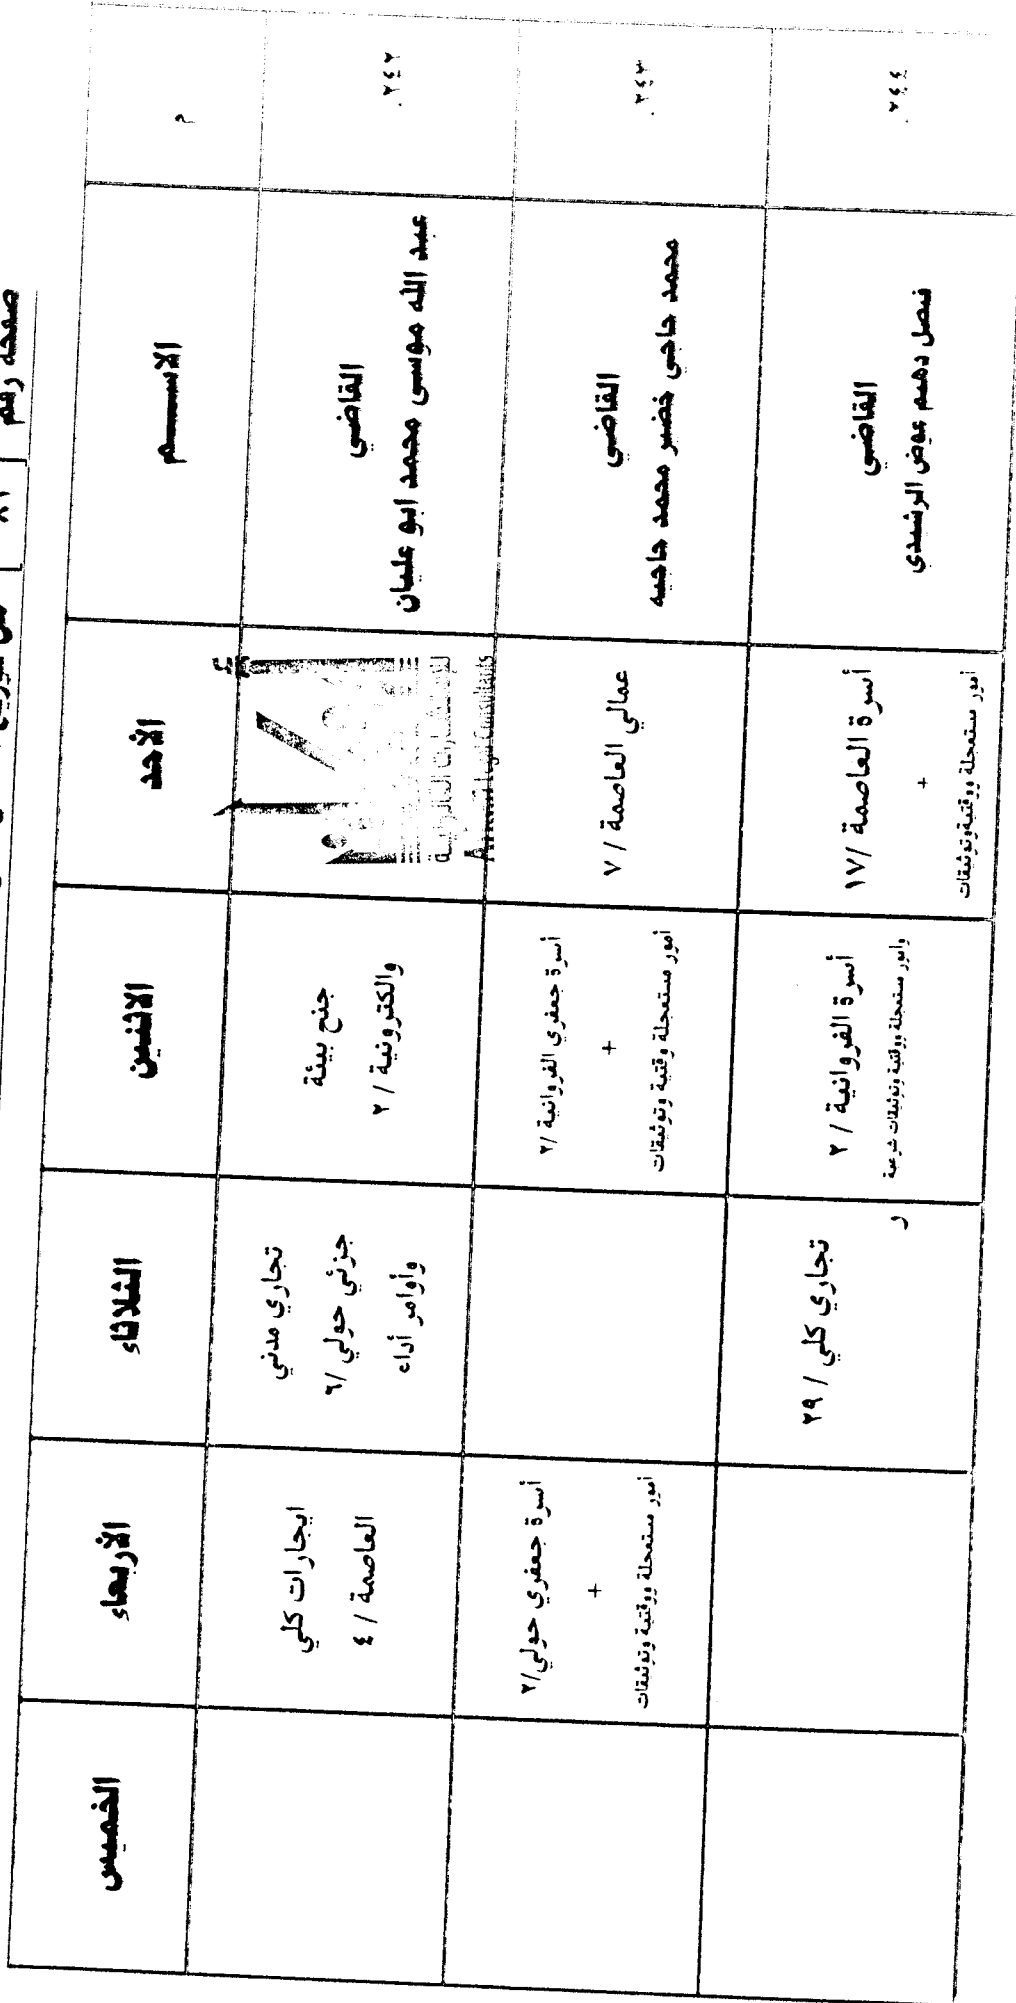 صفحة رقم
٨١
م
الاســـــم
الأحد
الاثنين
الثلاثاء
الأربعاء
الخميس
٢٤٢.
القاضي
عبد الله موسى محمد ابو عليان
للإستشارات القانونية
Legal Consultants
جنح بيئة
والكترونية / ٢
تجاري مدني
جزئي حولي /٦
وأوامر أداء
ايجارات كلي
العاصمة / ٤
٢٤٣.
القاضي
محمد حاجي خضير محمد حاجيه
عمالي العاصمة / ٧
أسرة جعفري الفروانية /٢
+
أمور مستعجلة وقتية وتوثيقات
أسرة جعفري حولي/٢
+
أمور مستعجلة ووقتية وتوثيقات
٢٤٤.
القاضي
فيصل دهيم عوض الرشيدي
أسرة العاصمة /١٧
+
أمور مستعجلة ووقتية وتوثيقات
أسرة الفروانية / ٢
وأمور مستعجلة ووقتية وتوثيقات شرعية
و
تجاري كلي / ٢٩